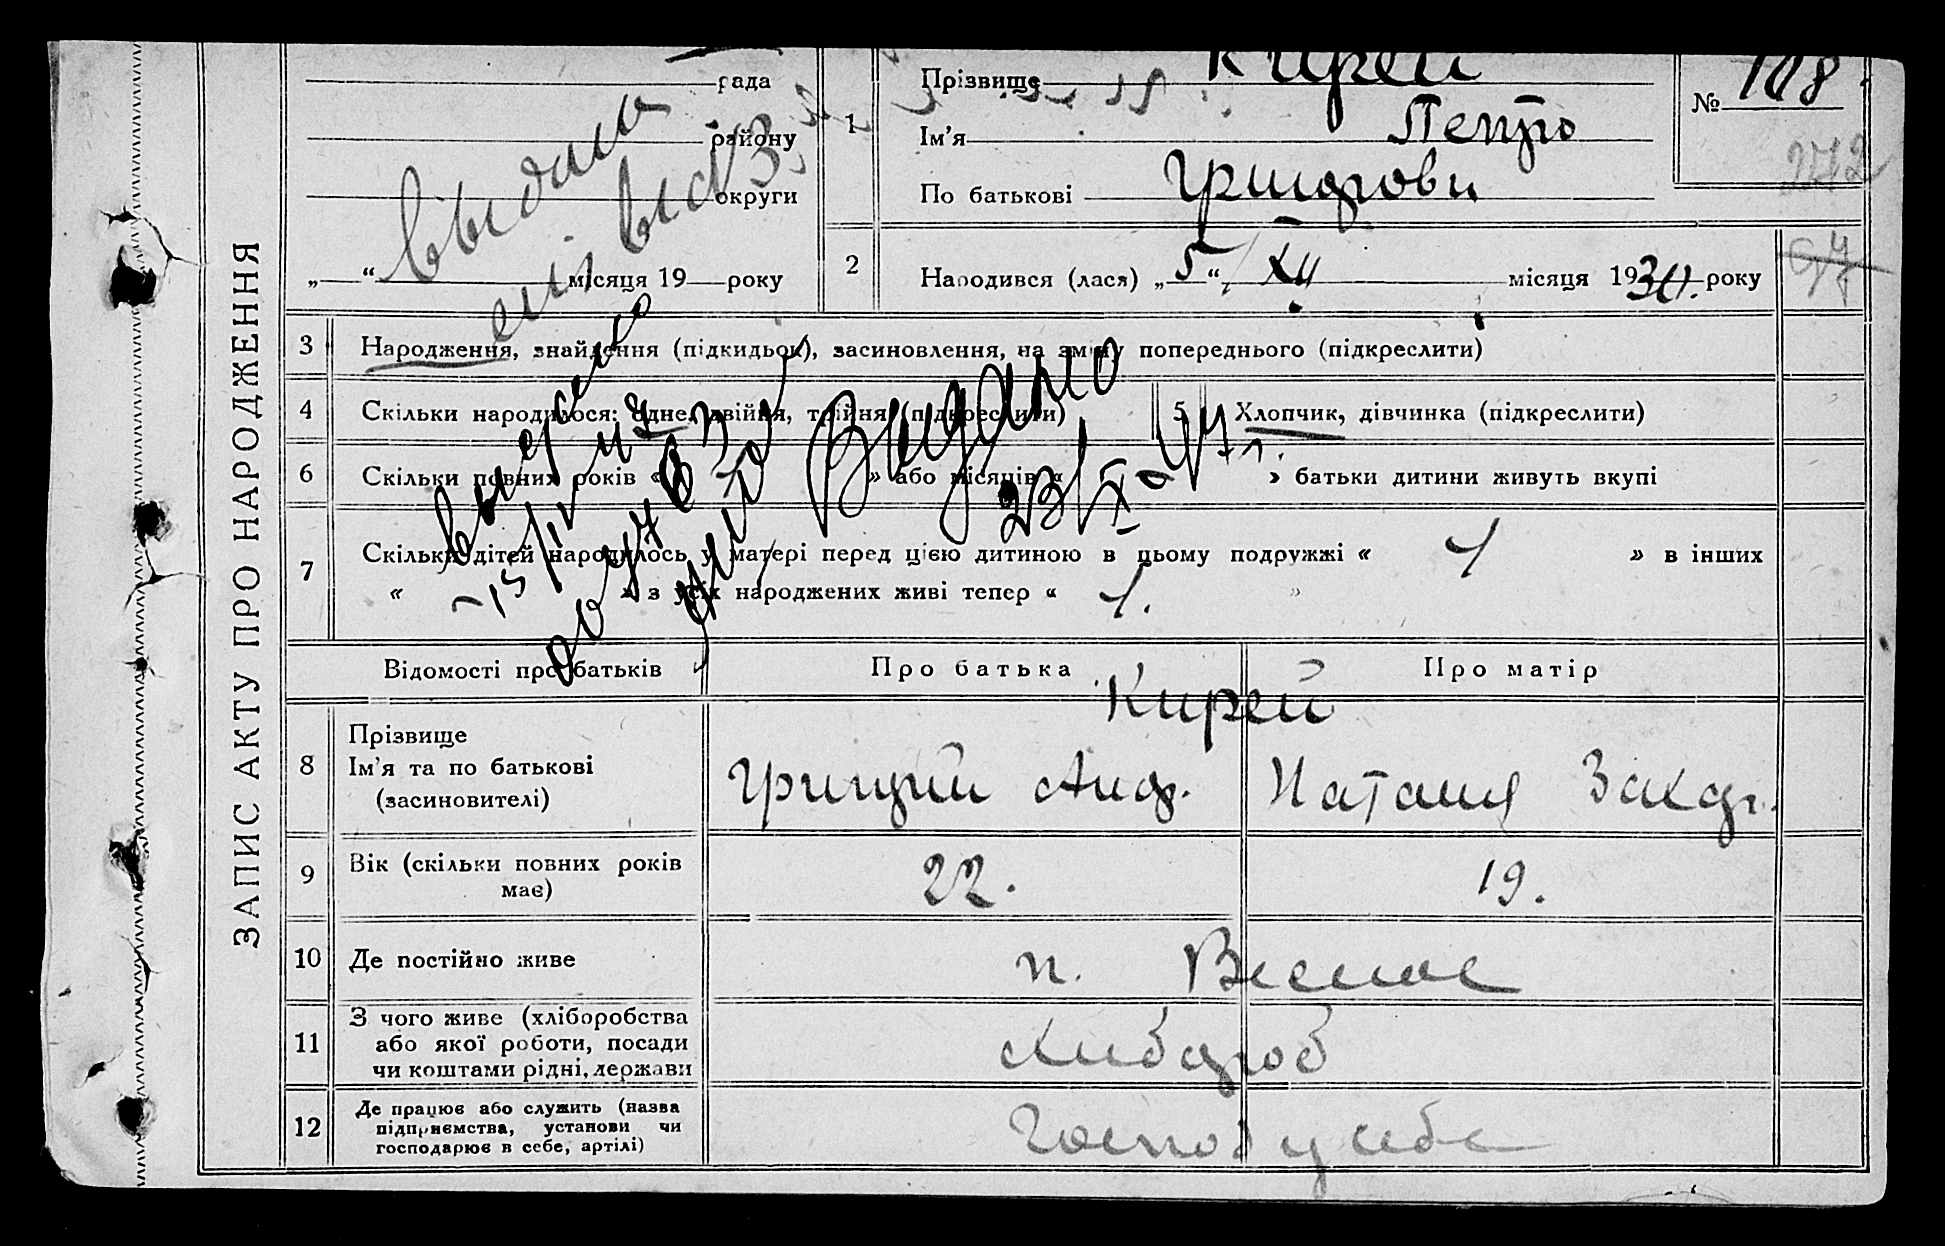 ЗАПИС АКТУ ПРО НАРОДЖЕННЯ
рада
району
округи
„ “ місяця 19 року
1
Прізвище Кирей
Ім'я Петро
По батькові
№ 108
242
2
Народився (лася) „ 5 “ XII місяця 1930 року
3
Народження, знайдення (підкидьок), засиновлення, на зміну попереднього (підкреслити)
4
Скільки народилося: одне, двійня, трійня (підкреслити)
5
Хлопчик, дівчинка (підкреслити)
6
Скільки повних років « » або місяців « » батьки дитини живуть вкупі
Видано
23/X-47 г.
7
Скільки дітей народилось у матері перед цією дитиною в цьому подружжі « 1 » в інших
« » з усіх народжених живі тепер « 1. »
Відомості про батьків
Про батька
Про матір
Кирей
8
Прізвище
Ім'я та по батькові
(засиновителі)
Гриций Анд.
Наталия Захар.
9
Вік (скільки повних років
має)
22.
19.
10
Де постійно живе
п. Веслое
11
З чого живе (хліборобства
або якої роботи, посади
чи коштами рідні, держави
хлибороб
12
Де працює або служить (назва
підприємства, установи чи
господарює в себе, артілі)
Господ у себе